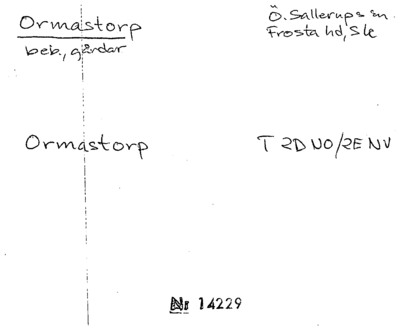 Ormastorp
beb., gårdar
Ö. Sallerups sn.
Frosta hd, Sk
Ormastorp
T 2D NO/2E NV
Nr 14229